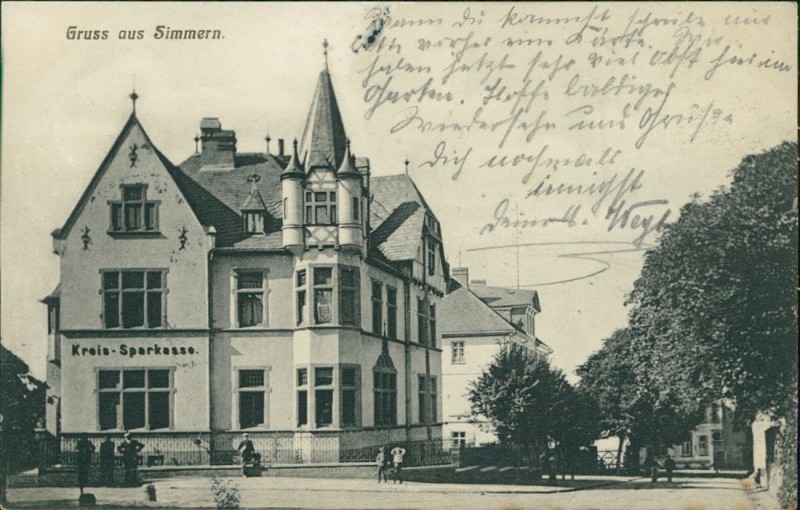 Gruss aus Simmern.
Wann du kommst schreibe mir
bitte vorher eine Karte. Wir
haben jetzt sehr viel Obst hier im
Garten. Hoffe baldiges
Wiedersehn und Grüße
Dich nochmals
innigst
Deine
Kreis-Sparkasse.